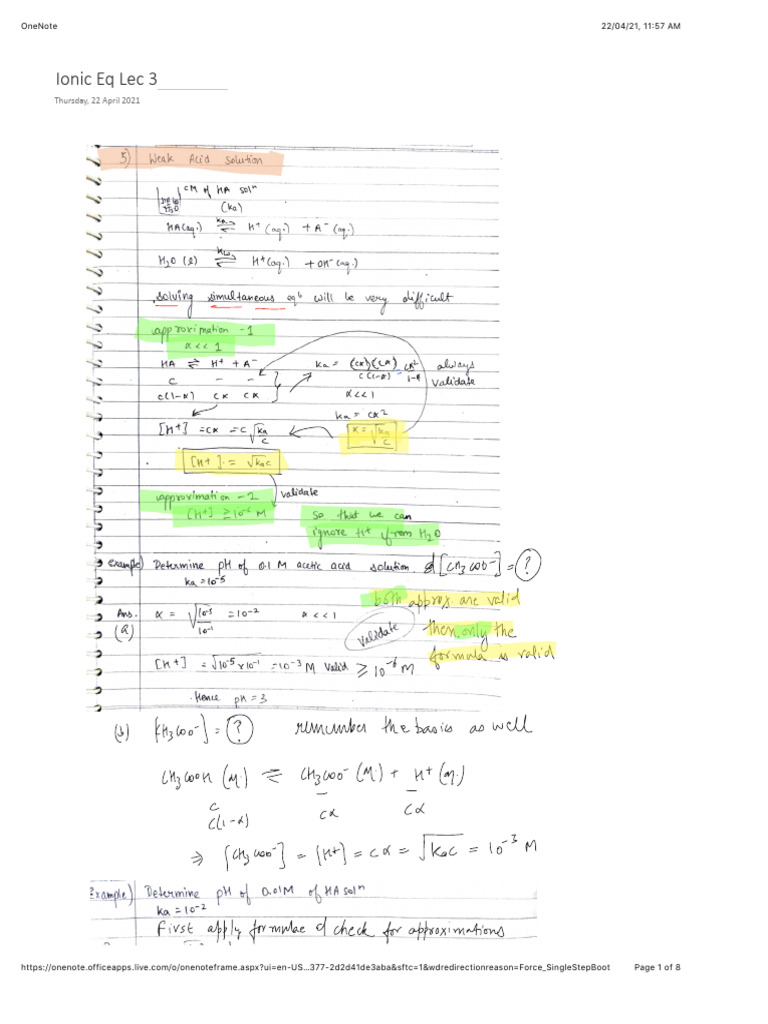 OneNote 22/04/21, 11:57 AM
Ionic Eq Lec 3
Thursday, 22 April 2021
5) Weak Acid Solution
CM of HA solⁿ
(ka)
HA(aq.) ⇌ H⁺(aq.) + A⁻(aq.)
H₂O (l) ⇌ H⁺(aq.) + OH⁻(aq.)
solving simultaneous eqᵇ will be very difficult
approximation -1
α<<1
HA ⇌ H⁺ + A⁻ ka = (cα)(cα) / c(1-α) = cα² / 1-α always validate
c - -
c(1-α) cα cα α<<1
ka = cα²
[H⁺] = cα = c√ka/c α = √ka/c
[H⁺] = √kac
approximation -2 validate
[H⁺] ≥ 10⁻⁶ M so that we can
ignore H⁺ from H₂O
example) Determine pH of 0.1 M acetic acid solution & [CH₃COO⁻] = ?
ka = 10⁻⁵
both approx. are valid
Ans. α = √10⁻⁵/10⁻¹ = 10⁻² α<<1
(a) validate then only the
formula is valid
[H⁺] = √10⁻⁵x10⁻¹ = 10⁻³ M valid ≥ 10⁻⁶ M
Hence pH = 3
(b) [CH₃COO⁻] = ? remember the basics as well
CH₃COOH (aq.) ⇌ CH₃COO⁻ (aq.) + H⁺ (aq.)
c - -
c(1-α) cα cα
⇒ [CH₃COO⁻] = [H⁺] = cα = √kac = 10⁻³ M
Example) Determine pH of 0.01M of HA solⁿ
ka = 10⁻²
First apply formulae & check for approximations
https://onenote.officeapps.live.com/o/onenoteframe.aspx?ui=en-US...377-2d2d41de3aba&sftc=1&wdredirectionreason=Force_SingleStepBoot Page 1 of 8